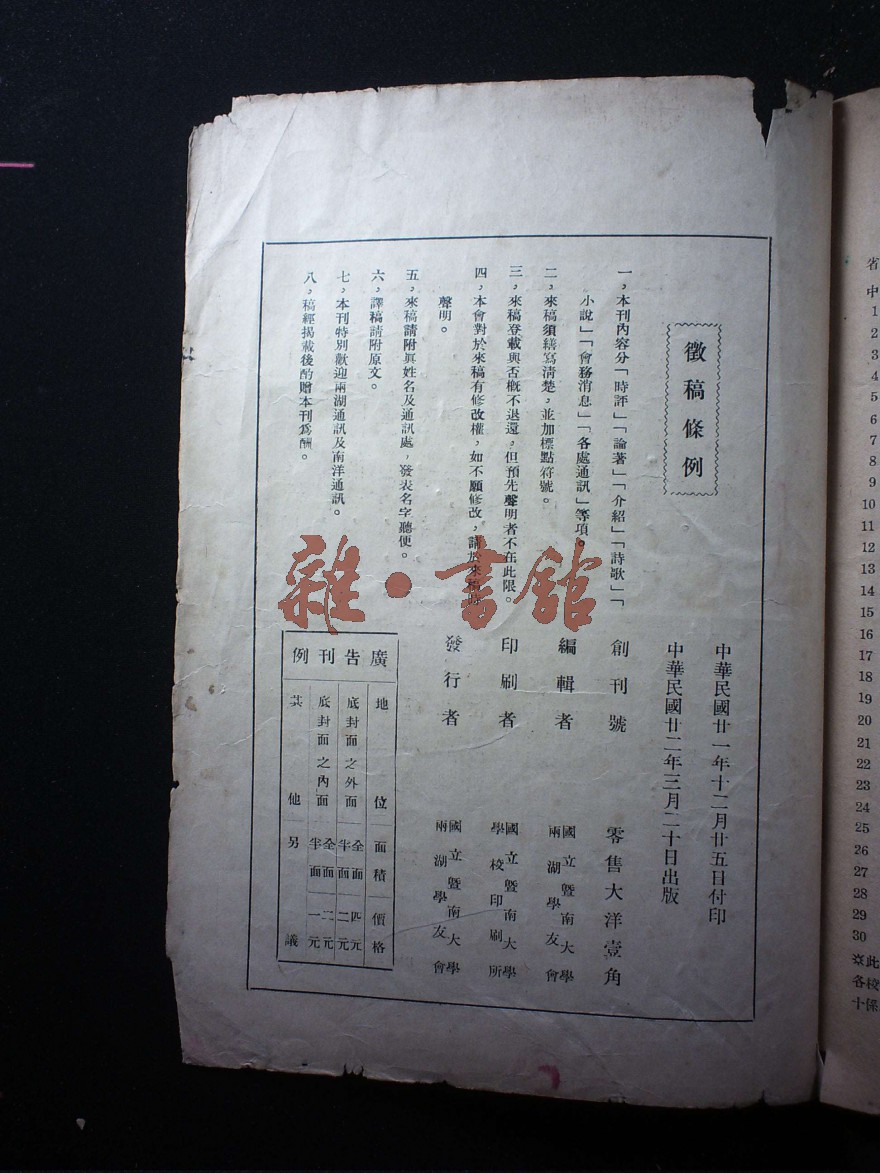 徵稿條例
一，本刊內容分「時評」「論著」「介紹」「詩歌」「
小說」「會務消息」「各處通訊」等項。
二，來稿須繕寫清楚，並加標點符號。
三，來稿登載與否概不退還，但預先聲明者不在此限。
四，本會對於來稿有修改權，如不願修改，請於來稿時
聲明。
五，來稿請附眞姓名及通訊處，發表名字聽便。
六，譯稿請附原文。
七，本刊特別歡迎兩湖通訊及南洋通訊。
八，稿經揭載後酌贈本刊爲酬。
中華民國廿一年十二月廿五日付印
中華民國廿二年三月二十日出版
創刊號 零售大洋壹角
編輯者 國立曁南大學
兩湖學友會
印刷者 國立曁南大學
學校印刷所
發行者 國立曁南大學
兩湖學友會
廣告刊例
地位 面積 價格
底封面之外面 全面 四元
半面 二元
底封面之內面 全面 二元
半面 一元
其他 另議
雜·書館
省
中
1
2
3
4
5
6
7
8
9
10
11
12
13
14
15
16
17
18
19
20
21
22
23
24
25
26
27
28
29
30
※此
各校
十係